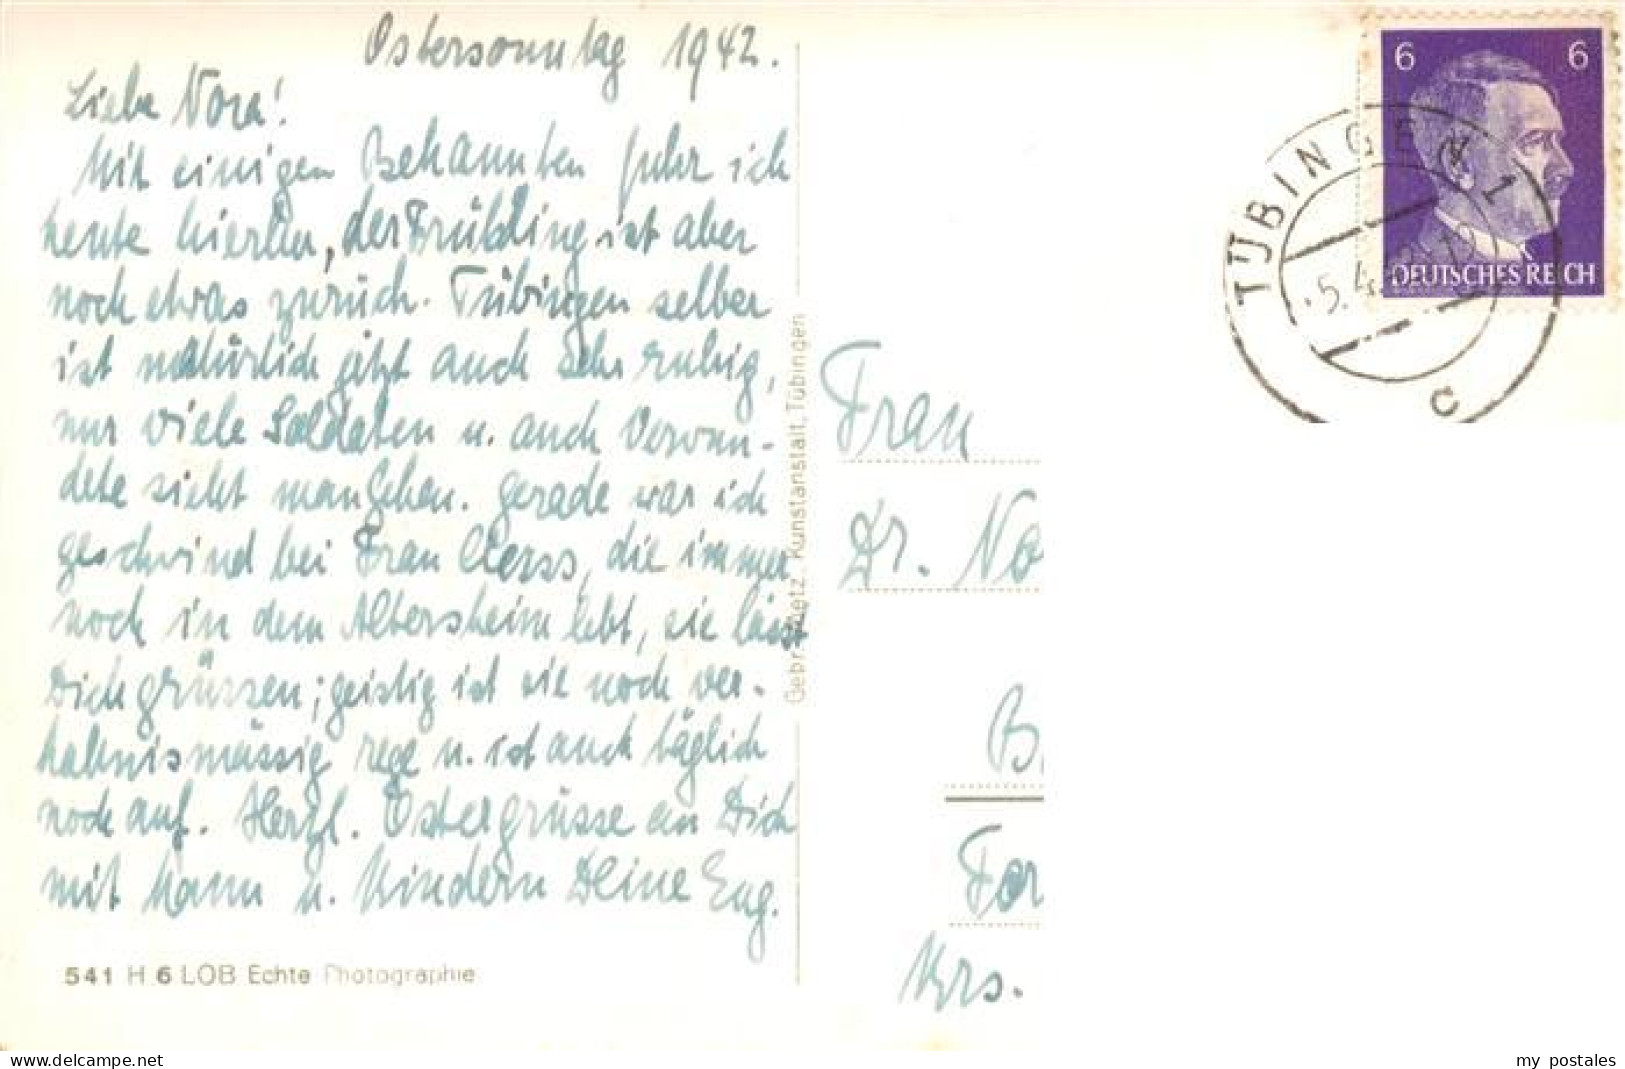 Ostersonntag 1942.
Liebe Nora!
Mit einigen Bekannten fuhr ich
heute hierhin, der Frühling ist aber
noch etwas zurück. Tübingen selber
ist natürlich jetzt auch sehr ruhig,
nur viele Soldaten u. auch Verwun-
dete sieht man gehen. Gerade war ich
geschwind bei Frau, die immer
noch in dem Altersheim lebt, sie lässt
Dich grüssen; geistig ist sie noch ver-
hältnismässig rege u. ist auch täglich
noch auf. Herzl. Ostergrüsse an Dich
mit Mann u. Kindern Deine Eug.
541 H 6 LOB Echte Photographie
Gebr. Metz, Kunstanstalt, Tübingen
6 6
DEUTSCHES REICH
TÜBINGEN 1
5.4.
c
Frau
Dr. No
B
For
Krs.
www.delcampe.net
my postales